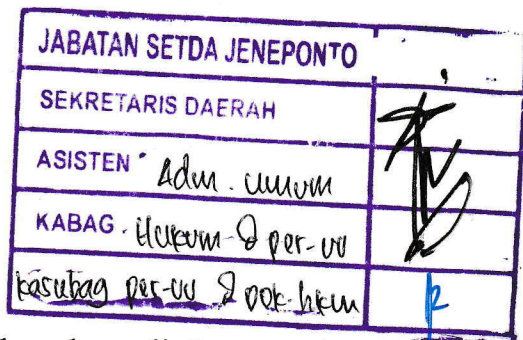 JABATAN SETDA JENEPONTO
SEKRETARIS DAERAH
ASISTEN Adm. umum
KABAG. Hukum & per-uu
kasubag per-uu & dok-hkm